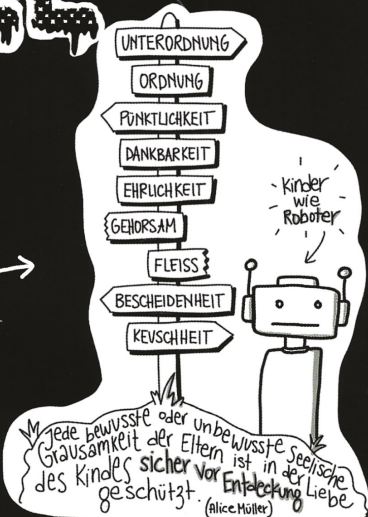 UNTERORDNUNG
ORDNUNG
PÜNKTLICHKEIT
DANKBARKEIT
EHRLICHKEIT
GEHORSAM
FLEISS
BESCHEIDENHEIT
KEUSCHHEIT
Kinder
wie
Roboter
Jede bewusste oder unbewusste seelische
Grausamkeit der Eltern ist in der Liebe
des Kindes sicher vor Entdeckung
geschützt. (Alice Müller)